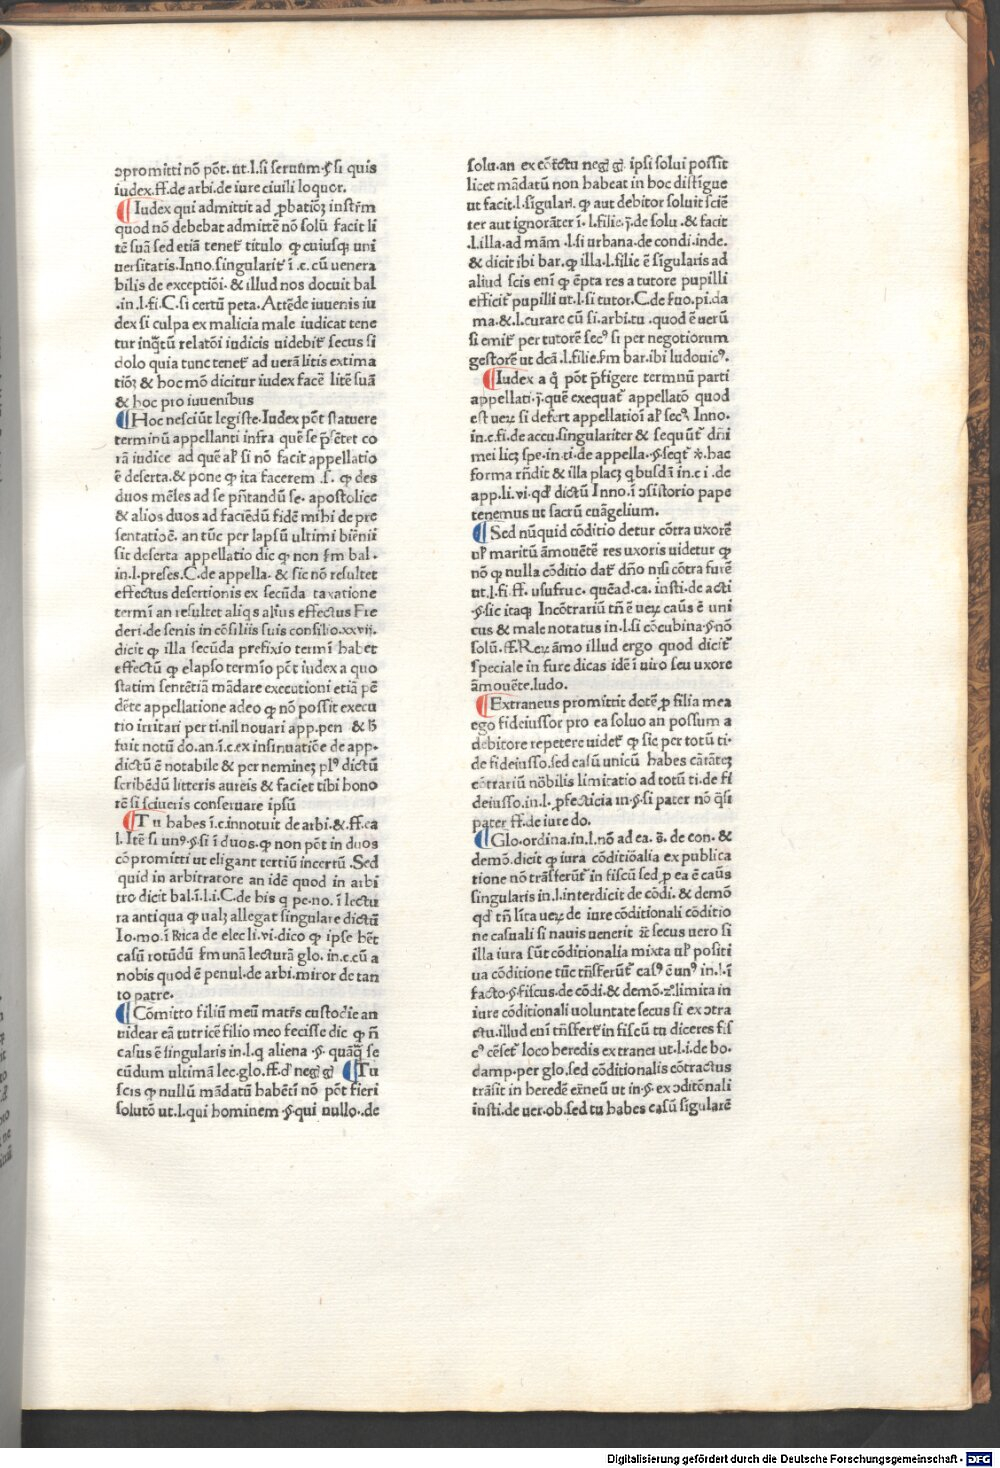 ɔpromitti nō pōt. ut.l.si seruum.§.si quis
iudex.ff.de arbi.de iure ciuili loquor.
¶ Iudex qui admittit ad ꝓbatiōꝫ instr̄m
quod nō debebat admittē nō solū facit li
tē suā sed etiā tenet᷑ titulo ꝙ cuiusqꝫ uni
uersitatis.Inno.singularit᷑ ī .c.cū uenera
bilis de exceptiōi. & illud nos docuit bal
.in.l.fi.C.si certū peta.Attēde iuuenis iu
dex si culpa ex malicia male iudicat tene
tur inq̄tū relatōi iudicis uidebit᷑ secus si
dolo quia tunc tenet᷑ ad uerā litis extima
tiōꝫ & hoc mō dicitur iudex facē litē suā
& hoc pro iuuenibus
¶ Hoc nesciūt legiste.Iudex pōt statuere
terminū appellanti infra quē se p̄sētet co
rā iudice ad quē al᷑ si nō facit appellatio
ē deserta.& pone ꝙ ita facerem .s. ꝙ des
duos mēses ad se pn̄tandū se. apostolice
& alios duos ad faciēdū fidē mihi de pre
sentatioē. an tūc per lapsū ultimi biēnii
sit deserta appellatio dic ꝙ non s̄m bal.
in.l.preses.C.de appella. & sic nō resultet
effectus desertionis ex secūda taxatione
termī an resultet aliqs alius effectus Fre
deri.de senis in cōsiliis suis consilio.xxvii.
dicit ꝙ illa secūda prefixio termī habet
effectū ꝙ elapso termīo pōt iudex a quo
statim sentētiā mādare executioni etiā pē
dēte appellatione adeo ꝙ nō possit execu
tio irritari per ti.nil nouari app.pen & h̄
fuit notū do.an.ī.c.ex insinuatiōe de app.
dictū ē notabile & per nemineꝫ plꝰ dictū
scribēdū litteris aureis & faciet tibi hono
rē si sciueris conseruare ipsū
¶ Tu habes ī.c.innotuit de arbi.&.ff.ea
l.Itē si unꝰ.§.si ī duos.ꝙ non pōt in duos
cōpromitti ut eligant tertiū incertū .Sed
quid in arbitratore an idē quod in arbi
tro dicit bal.ī.l.i.C.de his q pe.no.ī lectu
ra antiqua ꝙ ualꝫ allegat singulare dictū
Io.mo.ī Rrica de elec li.vi.dico ꝙ ipse hēt
casū rotūdū s̄m unā lecturā glo. in.c.cū a
nobis quod ē penul.de arbi.miror de tan
to patre.
¶ Cōmitto filiū meū matr̄s custodie an
uidear eā tutricē filio meo fecisse dic ꝙ n̄
casus ē singularis in.l.q aliena .§. quāq̄ se
cūdum ultimā lec.glo.ff.d᷑ neḡ ḡ ¶ Tu
scis ꝙ nullū mādatū habēti nō pōt fieri
solutō ut.l.qui hominem .§.qui nullo..de
solu.an ex cōtc̄tu neḡ ḡ. ipsi solui possit
licet mādatū non habeat in hoc distīgue
ut facit.l.sigulari. ꝙ aut debitor soluit sciē
ter aut ignorāter ī. l.filie.ȷ̄.de solu .& facit
.l.illa.ad mām .l.si urbana.de condi.inde.
& dicit ibi bar.ꝙ illa.l.filie ē sīgularis ad
aliud scis enī ꝙ ēpta res a tutore pupilli
efficit᷑ pupilli ut.l.si tutor.C.de suo.pi.da
ma.&.l.curare cū si.arbi.tu .quod ē uerū
si emit᷑ per tutorē secꝰ si per negotiorum
gestorē ut dcā.l.filie.s̄m bar.ibi ludouicꝰ.
¶ Iudex a q̄ pōt p̄figere termnū parti
appellati.ȷ̄.quē exequat᷑ appellatō quod
est ueꝝ si defert appellatiōi al᷑ secꝰ Inno.
in.c.fi.de accu.singulariter & sequūt᷑ dn̄i
mei licꝫ spe.in ti.de appella.§.seqt᷑ ꝟ.hac
forma rn̄dit & illa placꝫ q busdā in.c i .de
app.li.vi.qd᷑ dictū Inno.ī ɔsistorio pape
tenemus ut sacrū euāgelium.
¶ Sed nūquid cōditio detur cōtra uxorē
ul᷑ maritū āmouētē res uxoris uidetur ꝙ
nō ꝙ nulla cōditio dat᷑ dn̄o nisi cōtra furē
ut.l.fi ff. usufruc. quēad.ca. insti.de acti
.§.sic itaqꝫ Incōtrariū tn̄ ē ueꝝ cau̅s ē uni
cus & male notatus in.l.si cōcubina.§.nō
solū. ff.Reꝝ āmo illud ergo quod dicit᷑
speciale in fure dicas idē ī uiro seu uxore
āmouēte.ludo.
¶ Extraneus promittit dotē ꝓ filia mea
ego fideiussor pro ea soluo an possum a
debitore repetere uidet᷑ ꝙ sic per totū ti.
de fideiusso.sed casū unicū habes cārāteꝫ
cōtrariū nōbilis limitatio ad totū ti.de fi
deiusso.in.l. ꝓfecticia in.§.si pater nō q̄si
pater ff.de iure do.
¶ Glo.ordina.in.l.nō ad ea. ff. de con. &
demō.dicit ꝙ iura cōditiōalia ex publica
tione nō trāsferūt᷑ in fiscū sed ꝓ ea ē cau̅s
singularis in.l.interdicit de cōdi. & demō
qd᷑ tn̄ līta ueꝝ de iure cōditionali cōditio
ne casuali si nauis uenerit &c̄ secus uero si
illa iura sūt cōditionalia mixta ul᷑ positi
ua cōditione tūc tn̄sferūt᷑ casꝰ ē unꝰ in.l.ī
facto.§.fiscus.de cōdi.& demō.⁊.limita in
iure cōditionali uoluntate secus si ex ɔtra
ctu.illud enī tn̄sfert᷑ in fiscū tu diceres fis
cꝰ cēset᷑ loco heredis extranei ut.l.i.de bo.
damp.per glo.sed cōditionalis cōtractus
trāsit in heredē ex̄neū ut in.§.ex ɔditōnali
insti.de uer.ob.sed tu habes casū sīgularē
Digitalisierung gefördert durch die Deutsche Forschungsgemeinschaft - DFG